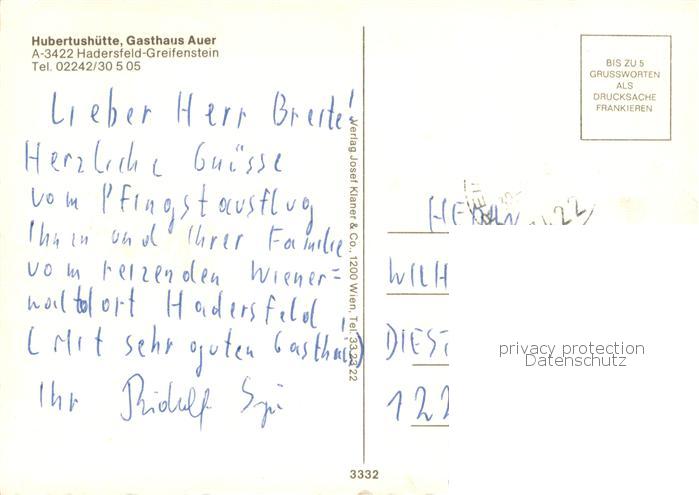 Hubertushütte, Gasthaus Auer
A-3422 Hadersfeld-Greifenstein
Tel. 02242/30 5 05
Lieber Herr Breite!
Herzliche Grüsse
vom Pfingstausflug
Ihnen und Ihrer Familie
vom reizenden Wiener=
waldort Hadersfeld!
(Mit sehr guten Gasthaus)
Ihr Rudolf
Verlag Josef Klaner & Co., 1200 Wien, Tel. 33 23 22
3332
BIS ZU 5
GRUSSWORTEN
ALS
DRUCKSACHE
FRANKIEREN
WILH
DIEST
122
privacy protection
Datenschutz